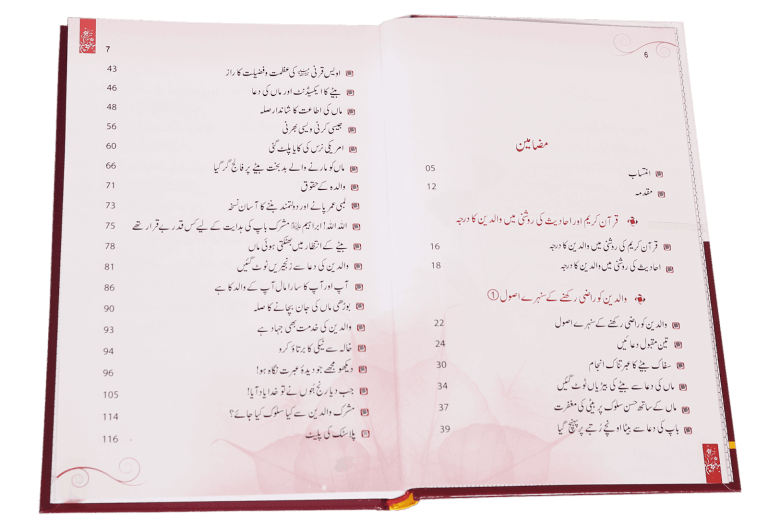 6
مضامین
انتساب 05
مقدمہ 12
قرآن کریم اور احادیث کی روشنی میں والدین کا درجہ
قرآن کریم کی روشنی میں والدین کا درجہ 16
احادیث کی روشنی میں والدین کا درجہ 18
والدین کو راضی رکھنے کے سنہرے اصول ①
والدین کو راضی رکھنے کے سنہرے اصول 22
تین مقبول دعائیں 24
سفاک بیٹے کا عبرتناک انجام 30
ماں کی دعا سے بیٹے کی بیڑیاں ٹوٹ گئیں 34
ماں کے ساتھ حسن سلوک پر بیٹی کی مغفرت 37
باپ کی دعا سے بیٹا اونچے رتبے پر پہنچ گیا 39
7
اویس قرنی رحمہ اللہ کی عظمت و فضیلت کا راز 43
بیٹے کا ایکسیڈنٹ اور ماں کی دعا 46
ماں کی اطاعت کا شاندار صلہ 48
جیسی کرنی ویسی بھرنی 56
امریکی نرس کی کایا پلٹ گئی 60
ماں کو مارنے والے بدبخت بیٹے پر فالج گر گیا 66
والدہ کے حقوق 71
لمبی عمر پانے اور دولتمند بننے کا آسان نسخہ 73
اللہ اللہ! ابراہیم علیہ السلام مشرک باپ کی ہدایت کے لیے کس قدر بے قرار تھے 75
بیٹے کے انتظار میں بھٹکتی ہوئی ماں 78
والدین کی دعا سے زنجیریں ٹوٹ گئیں 81
آپ اور آپ کا سارا مال آپ کے والد کا ہے 86
بوڑھی ماں کی جان بچانے کا صلہ 90
والدین کی خدمت بھی جہاد ہے 93
خالہ سے نیکی کا برتاؤ کرو 94
دیکھو مجھے جو دیدۂ عبرت نگاہ ہو! 96
جب دیا رنج بتوں نے تو خدا یاد آیا! 105
مشرک والدین سے کیا سلوک کیا جائے؟ 114
پلاسٹک کی پلیٹ 116